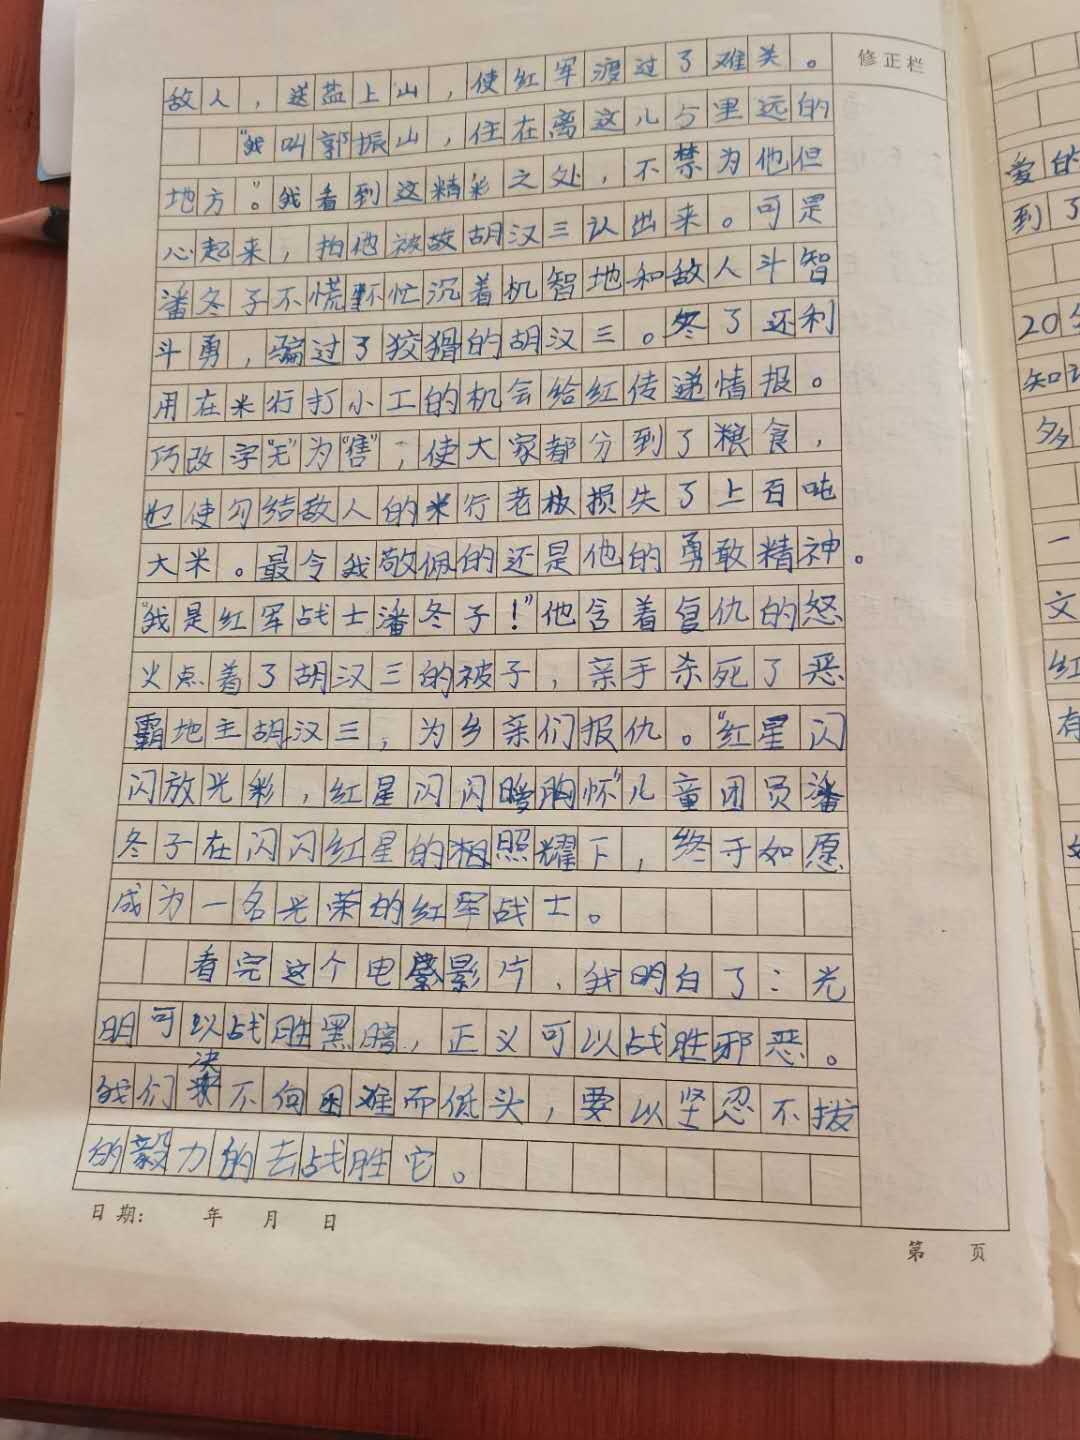 敌人，送盐上山，使红军渡过了难关。
修正栏
“我叫郭振山，住在离这儿5里远的
地方”。我看到这精彩之处，不禁为他但
心起来，怕他被敌胡汉三认出来。可是
潘冬子不慌不忙沉着机智地和敌人斗智
斗勇，骗过了狡猾的胡汉三。冬了还利
用在米行打小工的机会给红传递情报。
巧改字“无”为“售”；使大家都分到了粮食，
也使勾结敌人的米行老板损失了上百吨
大米。最令我敬佩的还是他的勇敢精神。
“我是红军战士潘冬子！”他含着复仇的怒
火点着了胡汉三的被子，亲手杀死了恶
霸地主胡汉三，为乡亲们报仇。“红星闪
闪放光彩，红星闪闪暖胸怀”儿童团员潘
冬子在闪闪红星的照耀下，终于如愿
成为一名光荣的红军战士。
看完这个电影片，我明白了：光
明可以战胜黑暗，正义可以战胜邪恶。
我们决不向困难而低头，要以坚忍不拔
的毅力的去战胜它。
日期： 年 月 日
第 页
爱的
到了
20
知
多
一
文
红
有